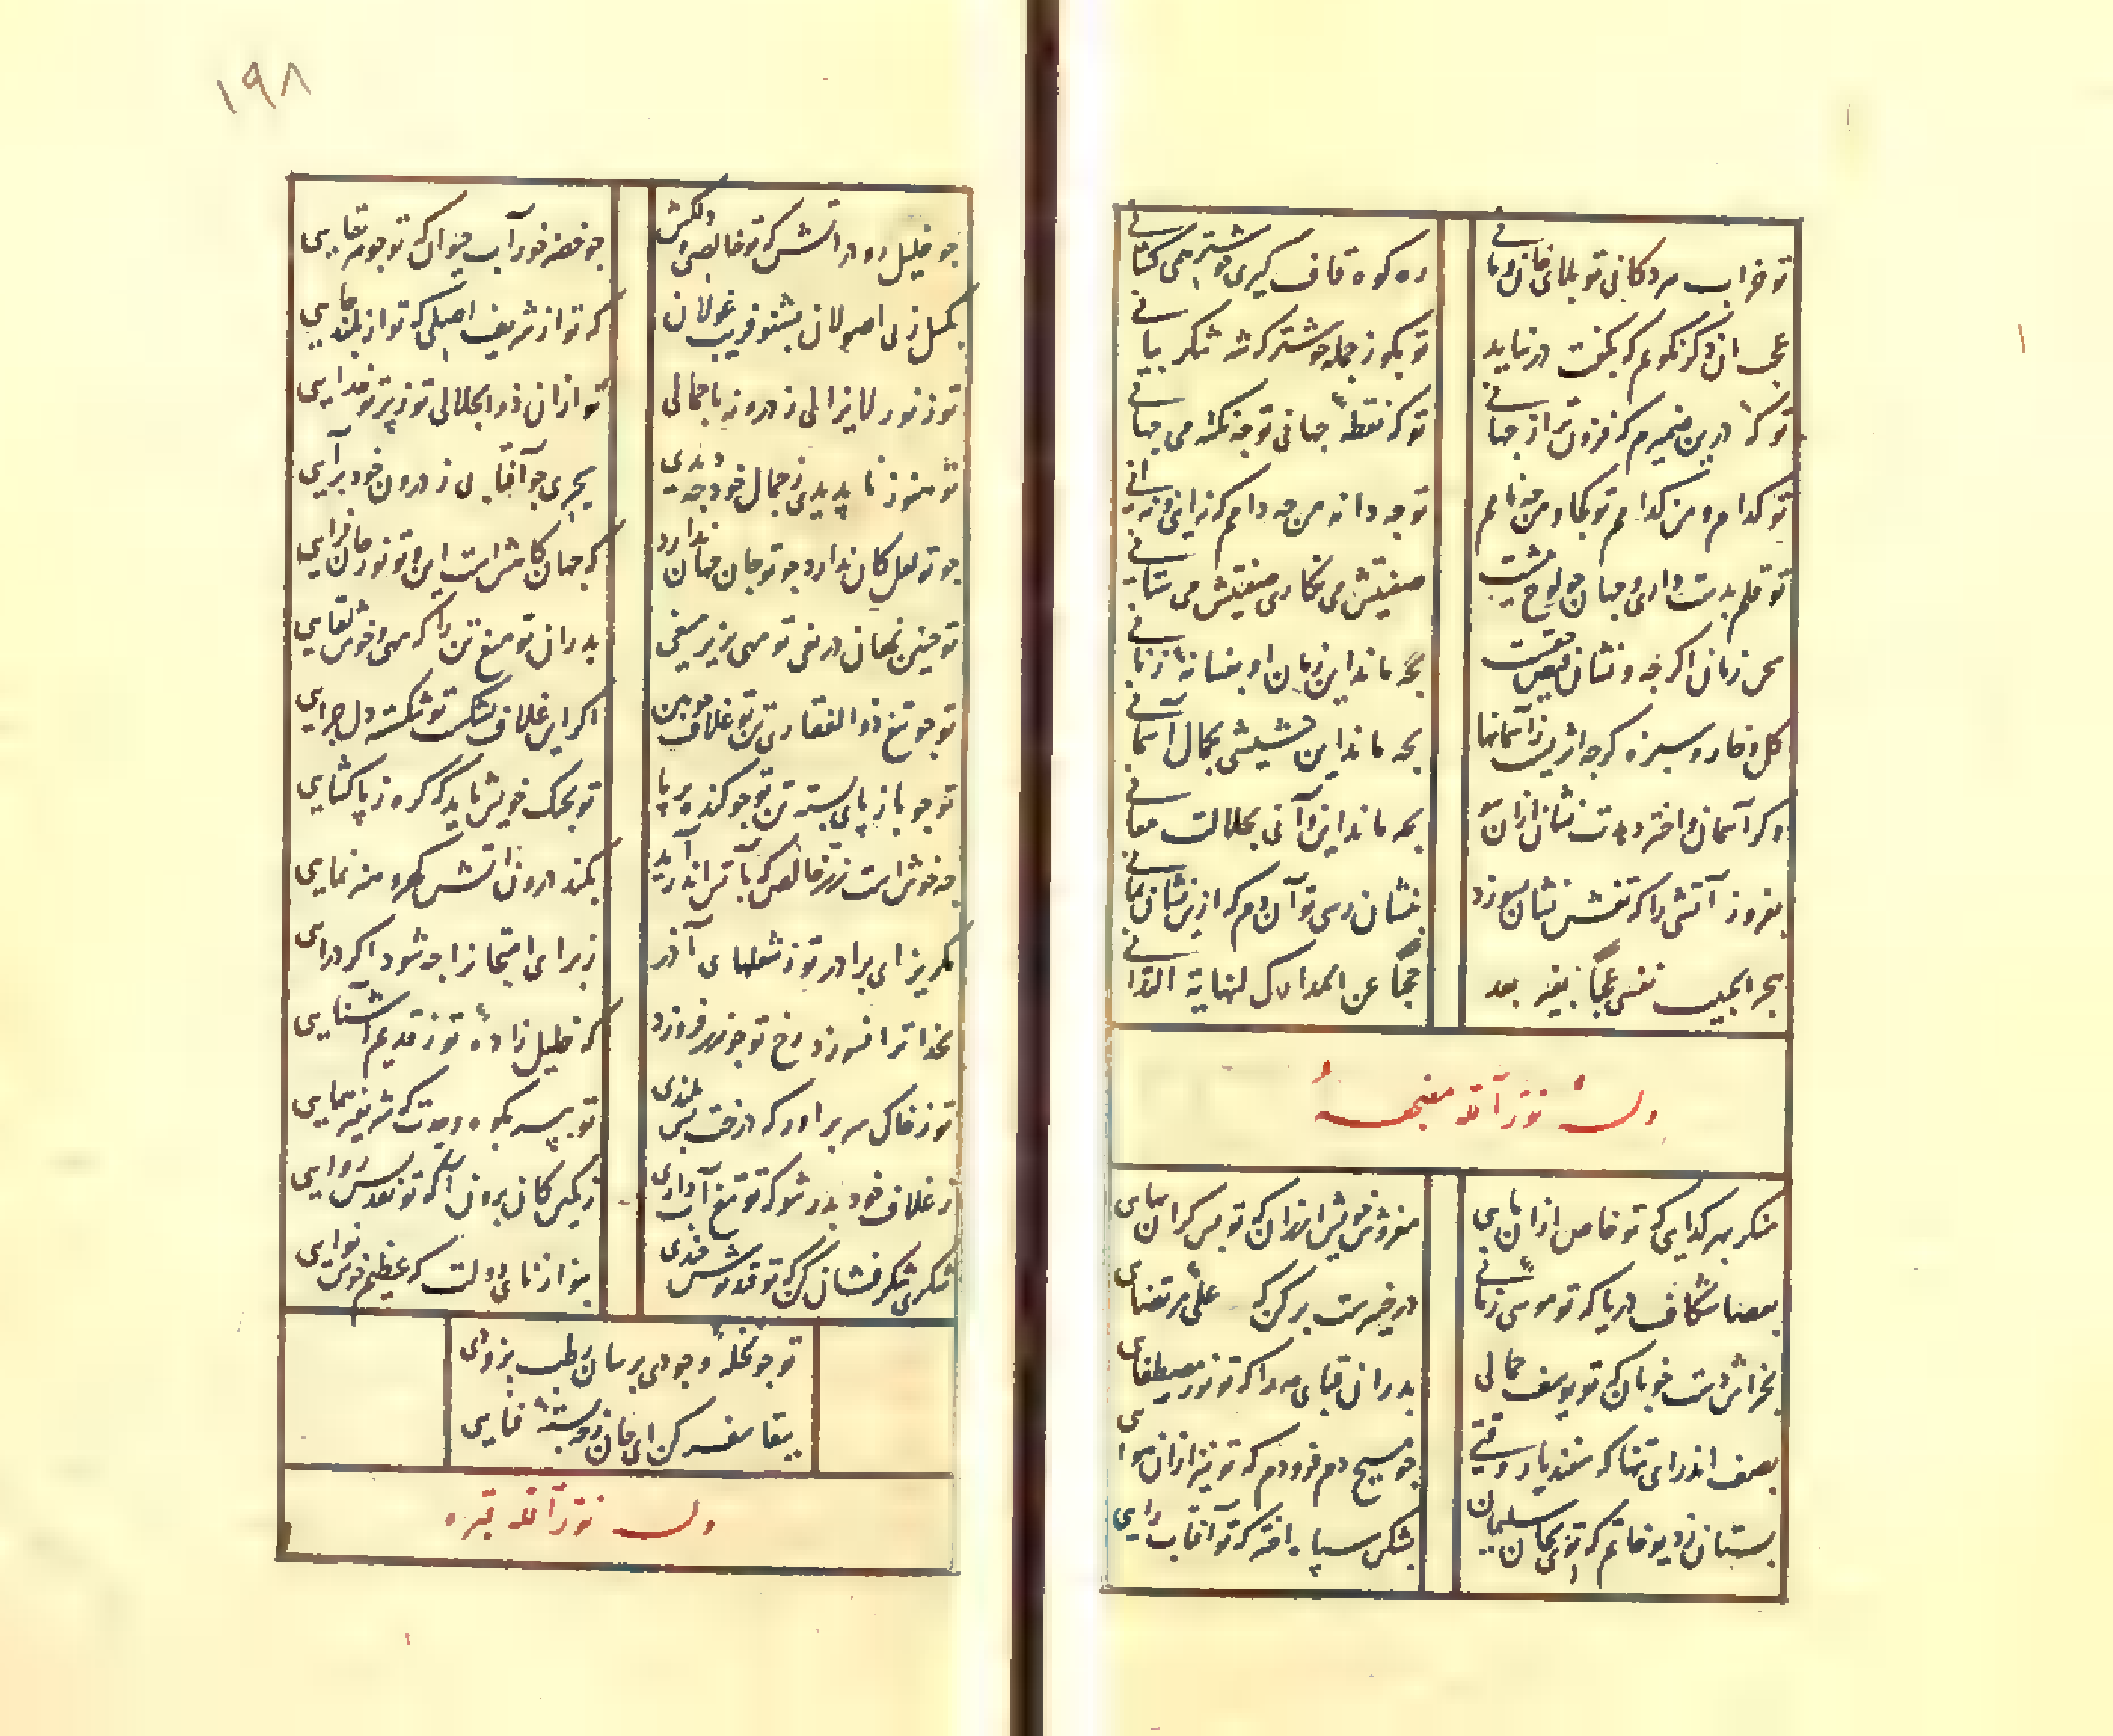 ۱۹۸
تو خراب هر دکانی تو بلای خان و مانی ره کوه قاف گیری چو شتر همی کشانی
عجب آن دگر نگویم که بگفت در نیاید تو بگو ز جمله خوشتر که شه شکر بیانی
تو که در این ضمیرم که فزون تر از جهانی تو که نقطه جهانی تو چه نکته می جهانی
تو کدام و من کدامم تو کجا و من چه نامم تو چه دانه من چه دامم که نه اینی و نه آنی
تو قلم بدست داری و جهان چو لوح پیشت صفتیش می نگاری صفتیش می ستانی
سخن زمان اگر چه و نشان بچه ماند این زبان او بفسانه زبانی
گل و خار و سبزه گر چه اثریست زآسمانها بچه ماند این حشیشی بجمال آسمانی
وگر آسمان و اختر دهدت نشان ازان سر بچه ماند این و آنی بجلالت معانی
بفروز آتشی را که نشان بسوزد بنشان رسی تو آن دم که ازین نشان
هجر الحبیب نفسی بغیر بعد عجبا عن المدارک لنهایة التدانی
وله نور الله مضجعه
منگر بهر گدایی که تو خاص ازان مایی مفروش خویش ارزان که تو بس گران بهایی
بعصا شکاف دریا که تو موسی زمانی در خیبرست برکن که علی مرتضایی
بخراش دست خوبان که تو یوسف جمالی بدران قبای مه را که تو نور مصطفایی
بصف اندرآی تنها که سفندیار وقتی چو مسیح دم فرو دم که تو نیز ازان هوایی
بستان ز دیو خاتم که تویی بجان سلیمان بشکن سپاه اختر که تو آفتاب رایی
چو خلیل رو در آتش که تو خالصی و دلکش چو خضر خور آب حیوان که تو جوهر بقایی
بگسل ز بی اصولان بشنو فریب غولان که تو از شریف اصلی که تو از بلند جایی
تو ز نور لایزالی ز درونه با جمالی تو ازان ذوالجلالی تو ز پرتو خدایی
تو هنوز ناپدیدی ز جمال خود چه دیدی سحری چو آفتابی ز درون خود برآیی
چو تو لعل کان ندارد چو تو جان جهان ندارد که جهان کاهش است این و تو نور جان فزایی
تو چنین نهان دریغی تو مهی بزیر میغی بدران تو میغ تن را که مهی و خوش لقایی
تو چو تیغ ذوالفقاری تن تو غلاف چوبین اگر این غلاف بشکست تو شکسته دل چرایی
تو چو باز پای بسته تن تو چو کنده بر پا تو بچنگ خویش باید که گره ز پا گشایی
چه خوش است زر خالص که بآتش اندر آید بکند درون آتش گهر و هنر نمایی
مگریز ای برادر تو ز شعلهای آذر ز برای امتحان را چه شود اگر درایی
بخدا ترا نسوزد رخ تو چو زر فروزد که خلیل زاده تو ز قدیم آشنایی
تو ز خاک سر برآور که درخت بس بلندی تو بپر بکوه وحدت که شریفتر همایی
ز غلاف خود بدر شو که تو تیغ آبداری ز کمین کان برون آ که تو نقد بس روایی
شکری شکر فشان کن که تو قند نوش قندی بنواز نای دولت که عظیم خوش نوایی
تو چو نخله وجودی برسان رطب بزودی
ببقا سفر کن ای جان ز چه بسته فنایی
وله نور الله قبره